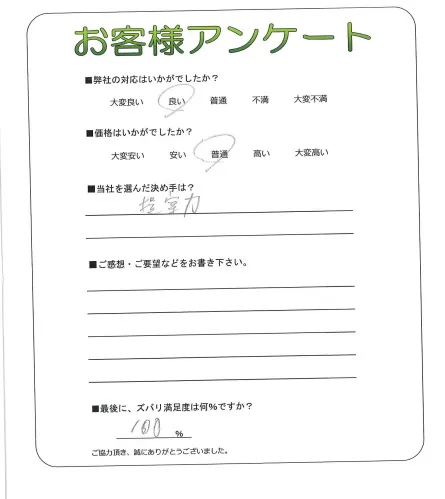 お客様アンケート
■弊社の対応はいかがでしたか？
大変良い 良い 普通 不満 大変不満
■価格はいかがでしたか？
大変安い 安い 普通 高い 大変高い
■当社を選んだ決め手は？
提案力
■ご感想・ご要望などをお書き下さい。
■最後に、ズバリ満足度は何%ですか？
100 %
ご協力頂き、誠にありがとうございました。